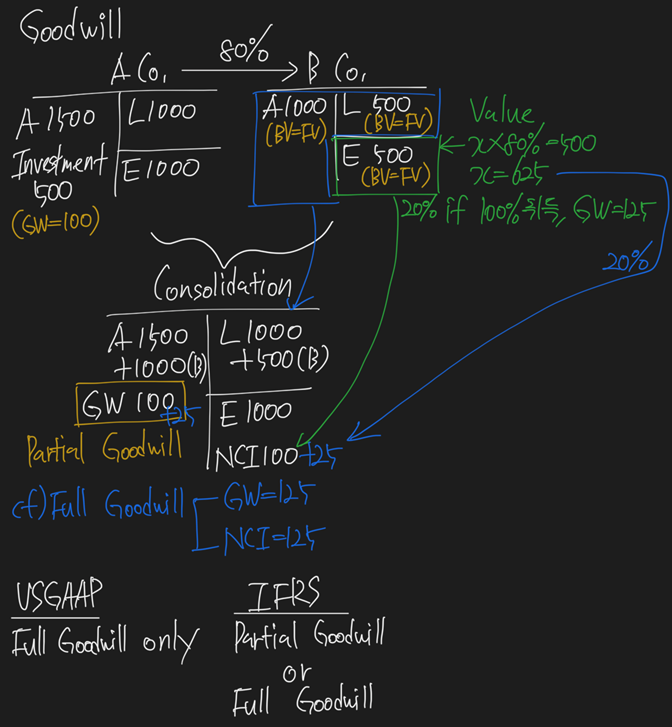 Goodwill
80%
A Co, → B Co,
A 1500 L 1000
Investment
500
(GW=100)
E 1000
A 1000
(BV=FV)
L 500
(BV=FV)
E 500
(BV=FV)
Value,
x×80%=500
x=625
20% if 100% 취득, GW=125
20%
Consolidation
A 1500
+1000(B)
L 1000
+500(B)
GW 100
+25
E 1000
Partial Goodwill
NCI 100+25
cf) Full Goodwill
GW=125
NCI=125
USGAAP
Full Goodwill only
IFRS
Partial Goodwill
or
Full Goodwill